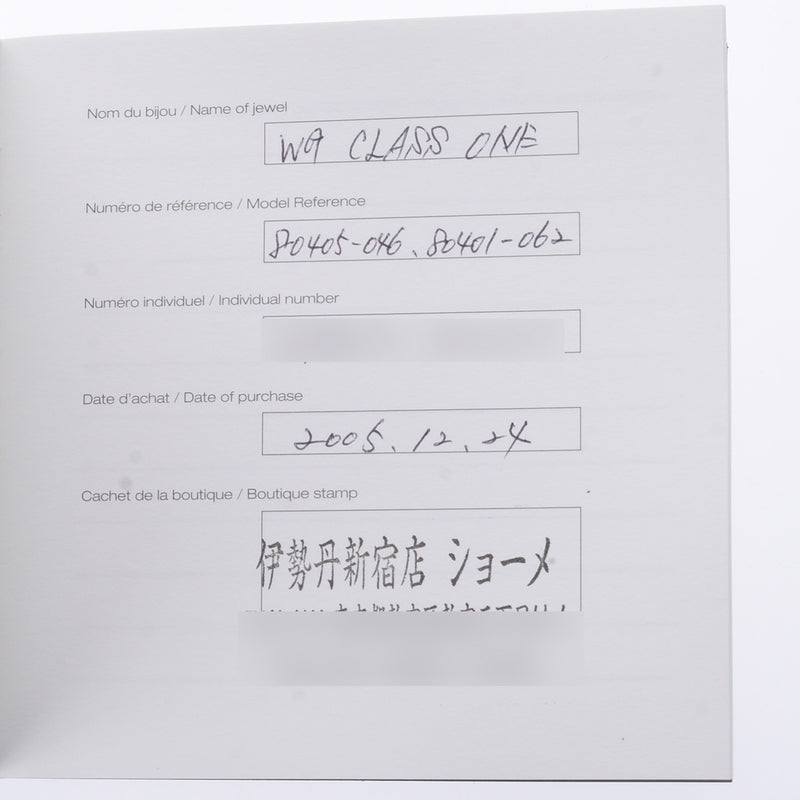 Nom du bijou / Name of jewel
WG CLASS ONE
Numéro de référence / Model Reference
80405-046、80401-062
Numéro individuel / Individual number
Date d'achat / Date of purchase
2005、12、24
Cachet de la boutique / Boutique stamp
伊勢丹新宿店 ショーメ